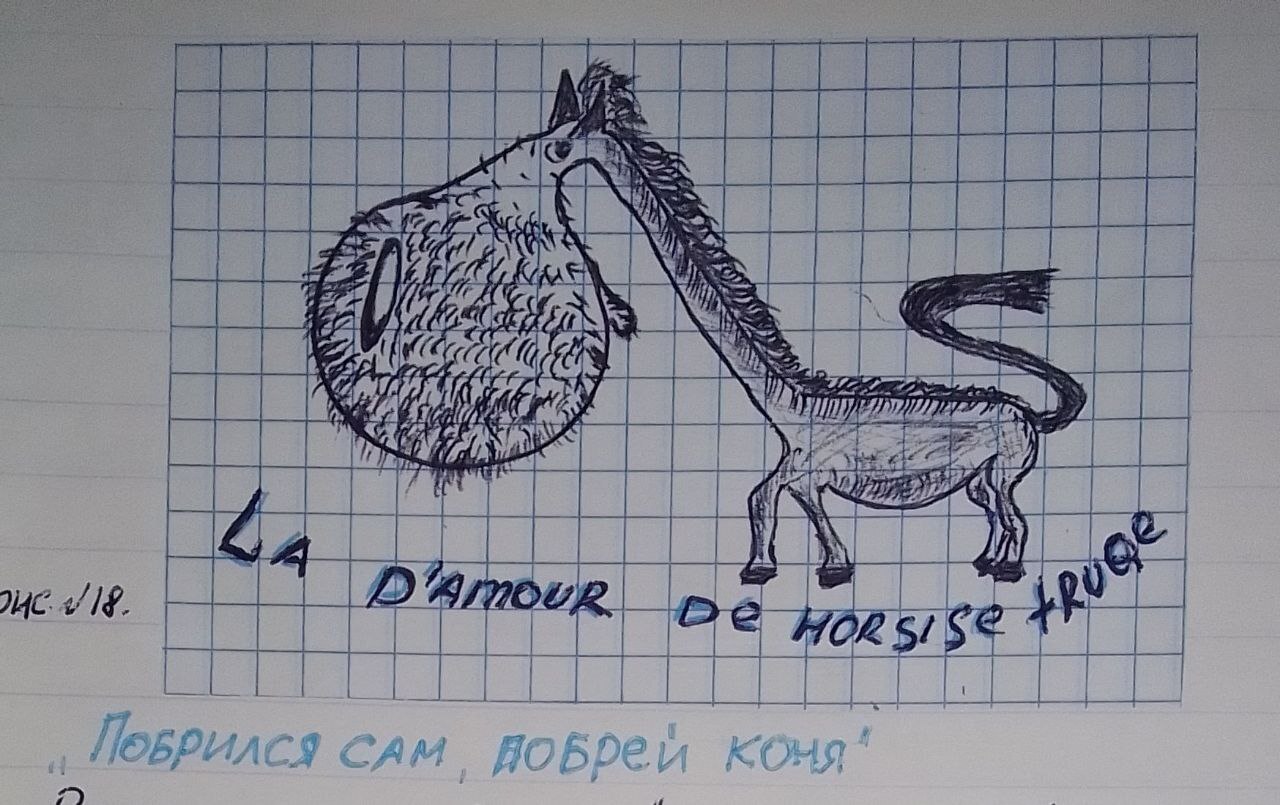 LA D'AMOUR De HORSISe tRUQe
.N18.
„Побрился сам, побрей коня"